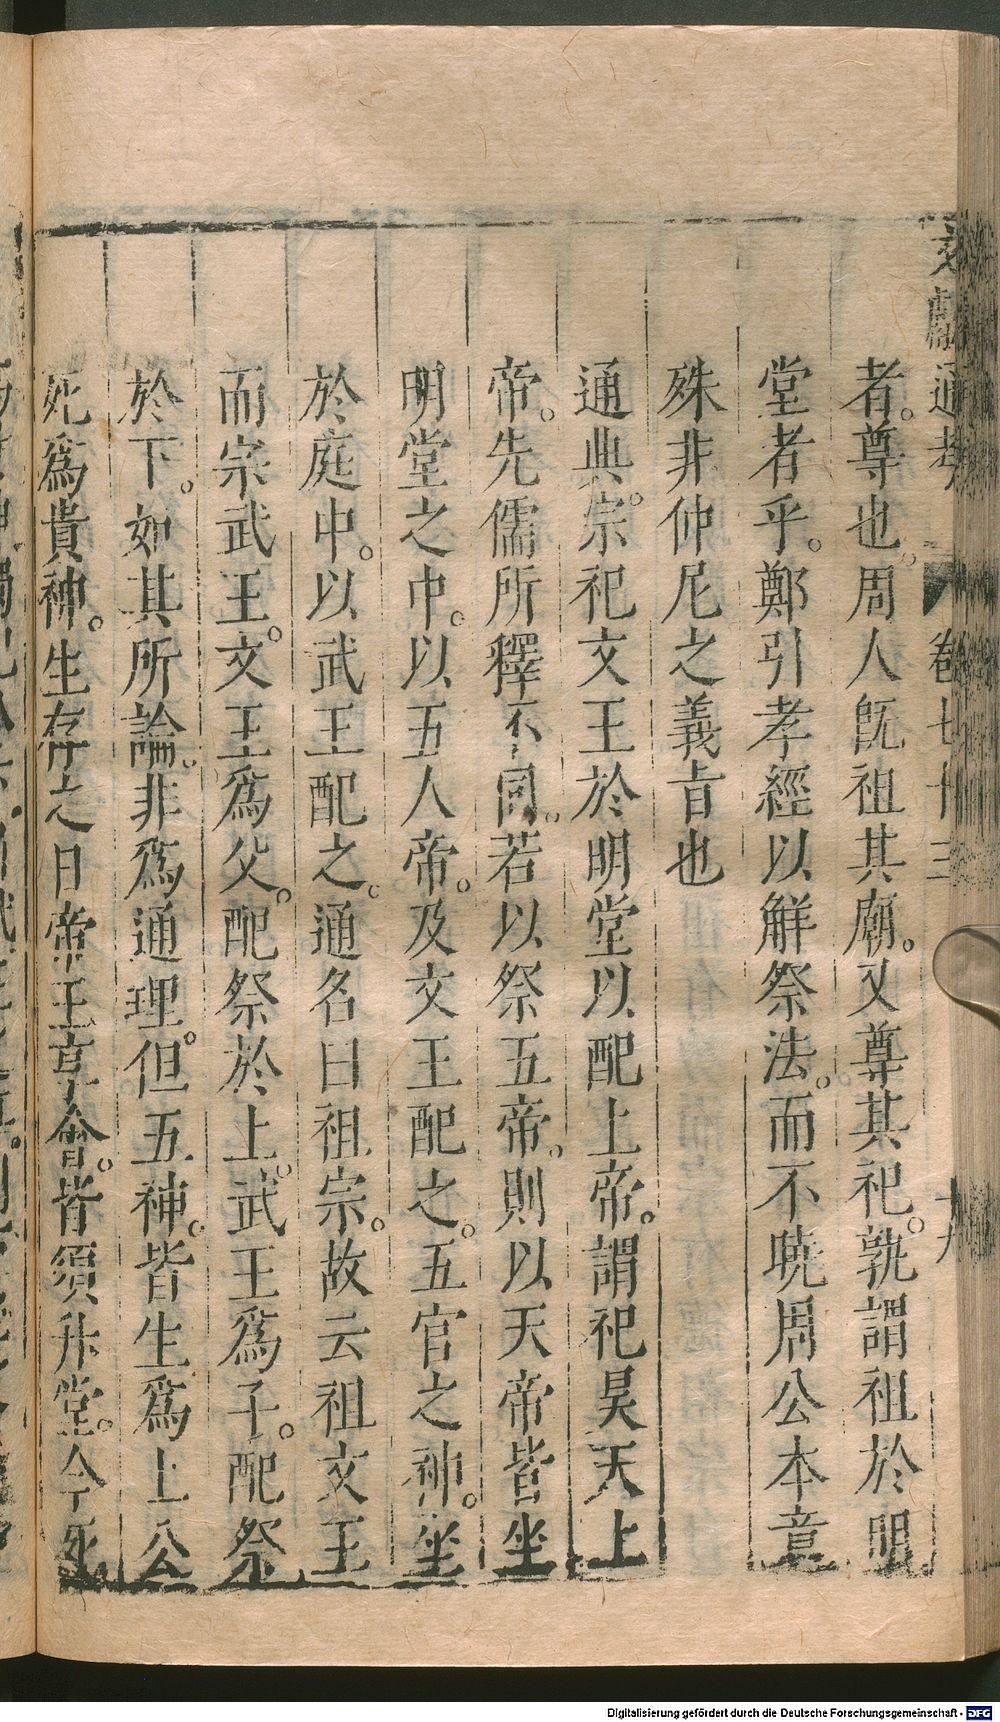 文獻通考 卷七十三 十九
者。尊也。周人旣祖其廟。又尊其祀。孰謂祖於明
堂者乎。鄭引孝經以解祭法。而不曉周公本意
殊非仲尼之義旨也
通典。宗祀文王於明堂以配上帝。謂祀昊天上
帝。先儒所釋不同。若以祭五帝。則以天帝皆坐
明堂之中。以五人帝。及文王配之。五官之神。坐
於庭中。以武王配之。通名曰祖宗。故云祖文王
而宗武王。文王爲父。配祭於上。武王爲子。配祭
於下。如其所論。非爲通理。但五神。皆生爲上公
死爲貴神。生存之日帝王享會。皆須升堂。今死
Digitalisierung gefördert durch die Deutsche Forschungsgemeinschaft - DFG